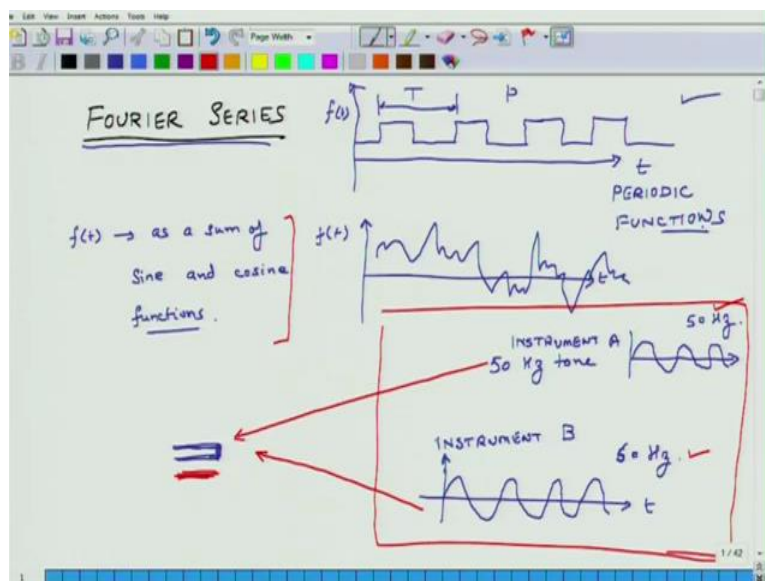 Edit View Insert Actions Tools Help
Page Width
FOURIER SERIES
f(t)
T
P
t
PERIODIC
FUNCTIONS
f(t) → as a sum of
Sine and cosine
functions.
f(t)
t
50 Hz.
INSTRUMENT A
50 Hz tone
INSTRUMENT B
50 Hz.
t
1 / 42
1